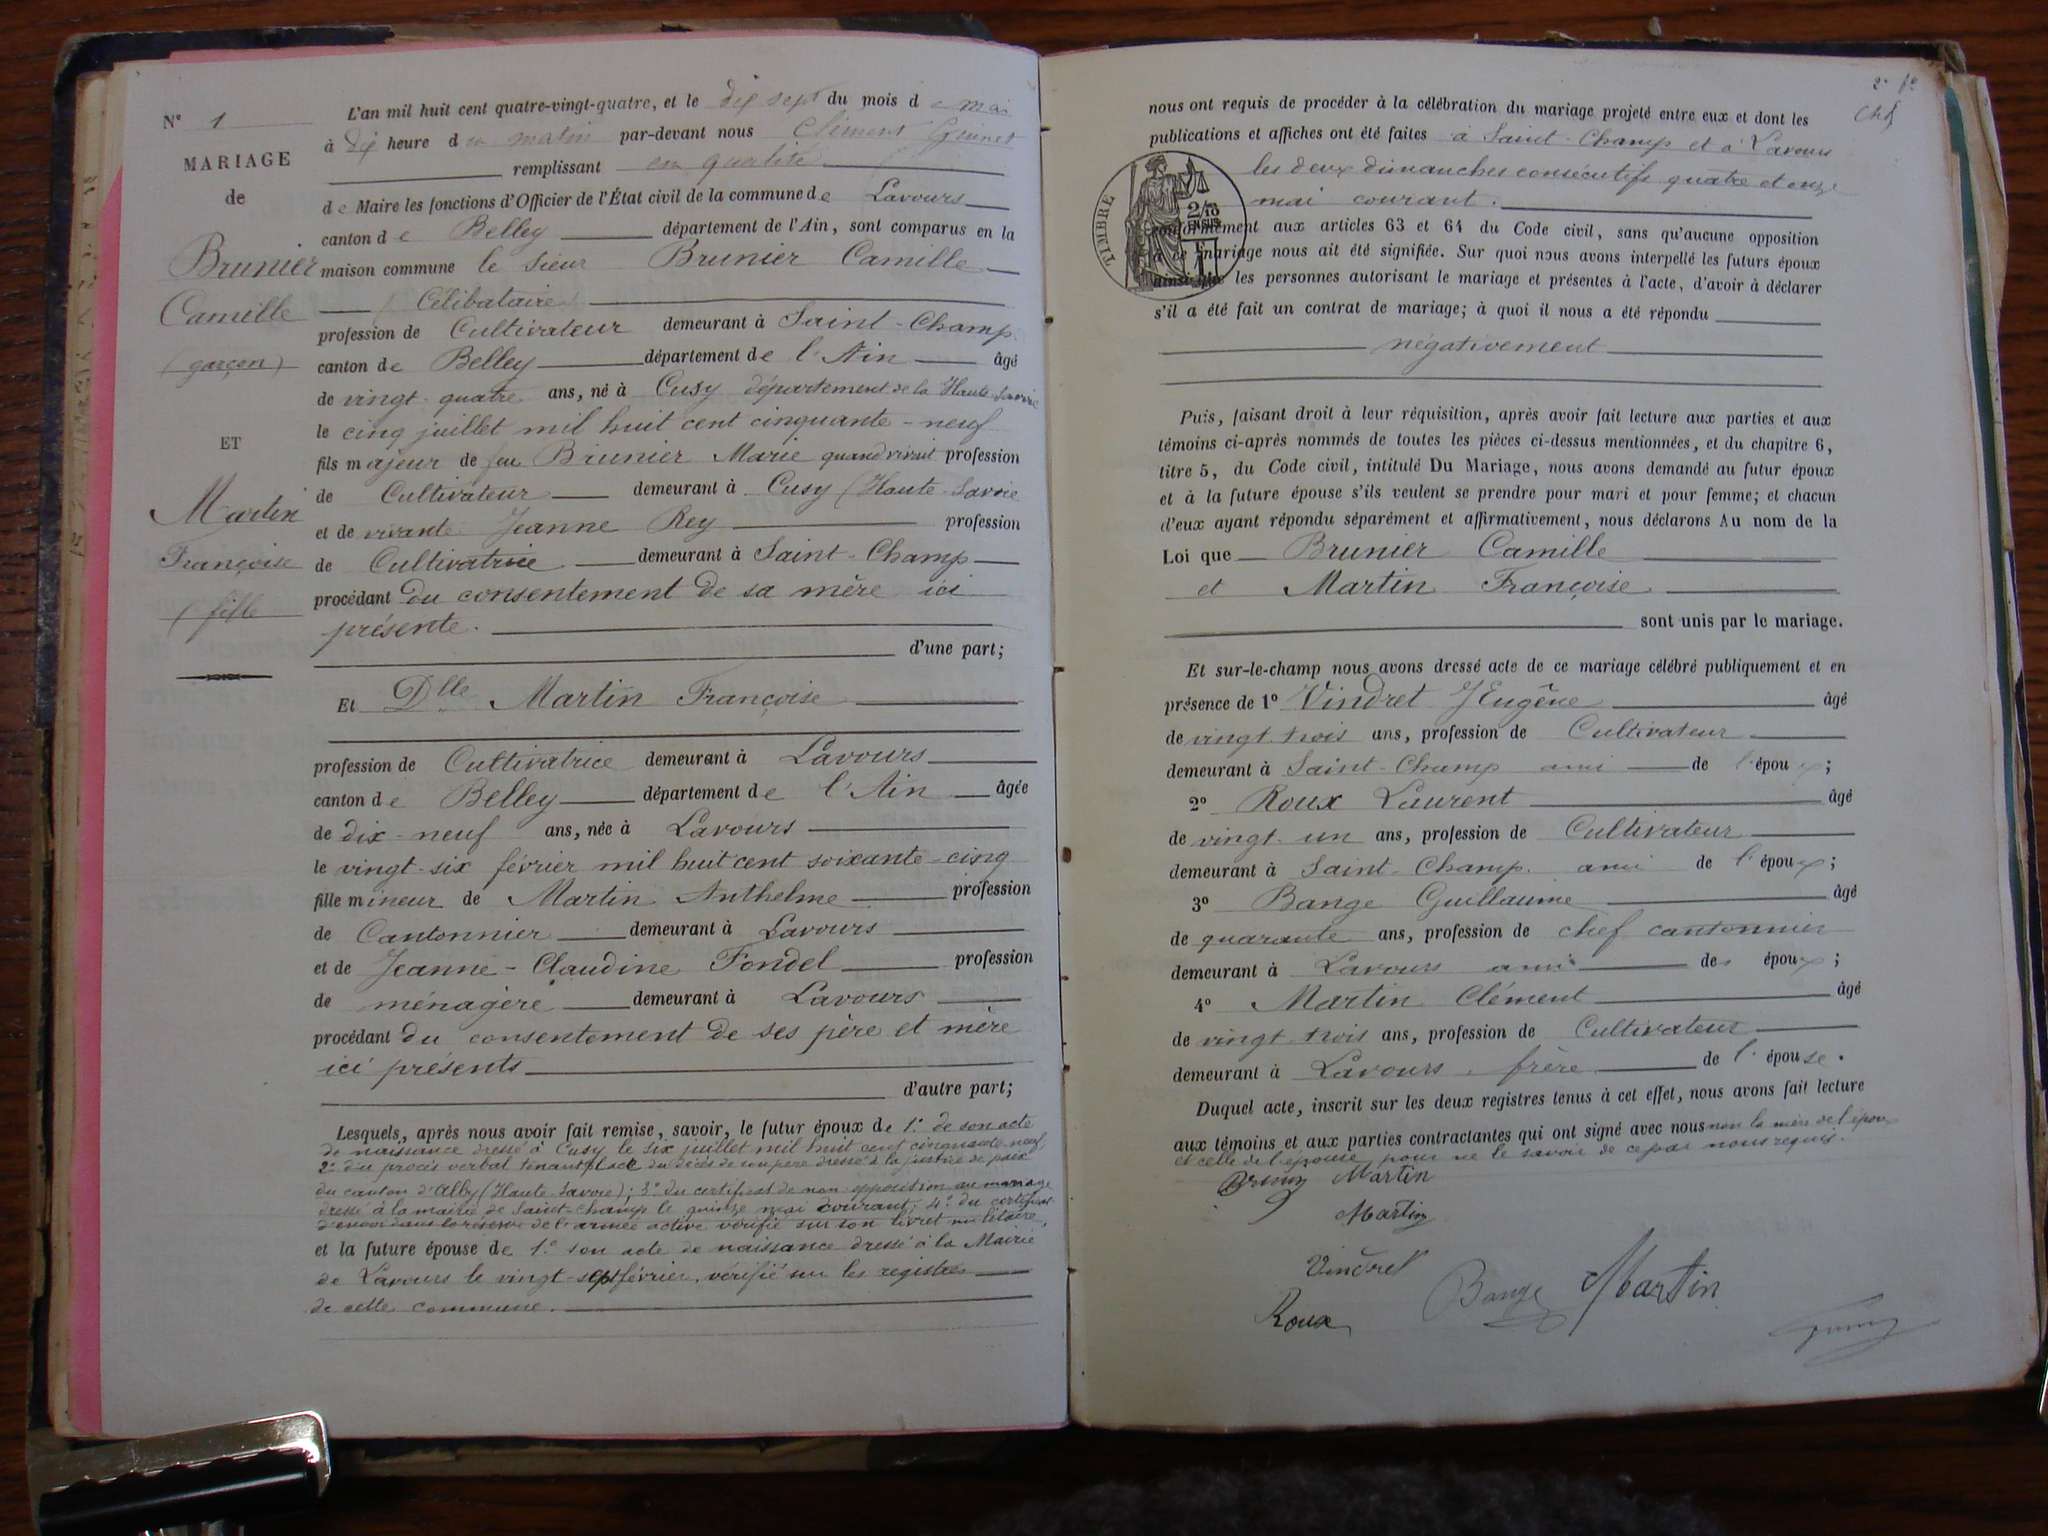 N° 1
MARIAGE
de
Brunier
Camille
(garçon)
ET
Martin
Françoise
(fille
L'an mil huit cent quatre-vingt-quatre, et le dix sept du mois de mai
à dix heure du matin par-devant nous Clément Guinet
remplissant en qualité
de Maire les fonctions d'Officier de l'État civil de la commune de Lavours
canton de Belley département de l'Ain, sont comparus en la
maison commune le sieur Brunier Camille
(Célibataire)
profession de Cultivateur demeurant à Saint-Champ
canton de Belley département de l'Ain âgé
de vingt-quatre ans, né à Cusy département de la Haute-Savoie
le cinq juillet mil huit cent cinquante-neuf
fils majeur de feu Brunier Marie quand vivait profession
de Cultivateur demeurant à Cusy (Haute-Savoie
et de vivante Jeanne Rey profession
de Cultivatrice demeurant à Saint-Champ
procédant du consentement de sa mère ici
présente.
d'une part;
Et Dlle Martin Françoise
profession de Cultivatrice demeurant à Lavours
canton de Belley département de l'Ain âgée
de dix-neuf ans, née à Lavours
le vingt-six février mil huit cent soixante-cinq
fille mineur de Martin Anthelme profession
de Cantonnier demeurant à Lavours
et de Jeanne-Claudine Fondel profession
de ménagère demeurant à Lavours
procédant du consentement de ses père et mère
ici présents
d'autre part;
Lesquels, après nous avoir fait remise, savoir, le futur époux de 1° de son acte
de naissance dressé à Cusy le six juillet mil huit cent cinquante-neuf
2° du procès verbal tenant place du décès de son père dressé à la justice de paix
du canton d'Alby (Haute-Savoie); 3° du certificat de non opposition au mariage
dressé à la mairie de Saint-Champ le quinze mai courant; 4° du certificat
d'envoi dans la réserve de l'armée active vérifié sur son livret militaire,
et la future épouse de 1° son acte de naissance dressé à la Mairie
de Lavours le vingt-sept février, vérifié sur les registres
de cette commune.
2e fe
nous ont requis de procéder à la célébration du mariage projeté entre eux et dont les
publications et affiches ont été faites à Saint-Champ et à Lavours
les deux dimanches consécutifs quatre et onze
mai courant.
TIMBRE
2/10
EN SUS
conformément aux articles 63 et 64 du Code civil, sans qu'aucune opposition
à ce mariage nous ait été signifiée. Sur quoi nous avons interpellé les futurs époux
ainsi que les personnes autorisant le mariage et présentes à l'acte, d'avoir à déclarer
s'il a été fait un contrat de mariage; à quoi il nous a été répondu
négativement
Puis, faisant droit à leur réquisition, après avoir fait lecture aux parties et aux
témoins ci-après nommés de toutes les pièces ci-dessus mentionnées, et du chapitre 6,
titre 5, du Code civil, intitulé Du Mariage, nous avons demandé au futur époux
et à la future épouse s'ils veulent se prendre pour mari et pour femme; et chacun
d'eux ayant répondu séparément et affirmativement, nous déclarons Au nom de la
Loi que Brunier Camille
et Martin Françoise
sont unis par le mariage.
Et sur-le-champ nous avons dressé acte de ce mariage célébré publiquement et en
présence de 1° Vindret Eugène âgé
de vingt trois ans, profession de Cultivateur
demeurant à Saint-Champ ami de l'époux;
2° Roux Laurent âgé
de vingt-un ans, profession de Cultivateur
demeurant à Saint-Champ. ami de l'époux;
3° Bange Guillaume âgé
de quarante ans, profession de chef cantonnier
demeurant à Lavours ami des époux;
4° Martin Clément âgé
de vingt trois ans, profession de Cultivateur
demeurant à Lavours, frère de l'épouse.
Duquel acte, inscrit sur les deux registres tenus à cet effet, nous avons fait lecture
aux témoins et aux parties contractantes qui ont signé avec nous non la mère de l'époux
et celle de l'épouse pour ne le savoir de ce par nous requis.
Martin
Martin
Vindret
Roux
Bange
Martin